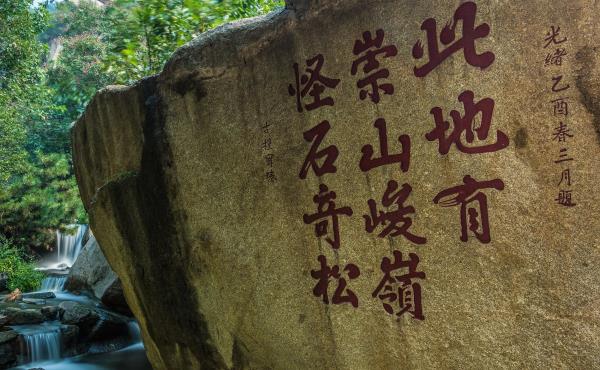 光緒乙酉春三月題
此地有
崇山峻嶺
怪石奇松